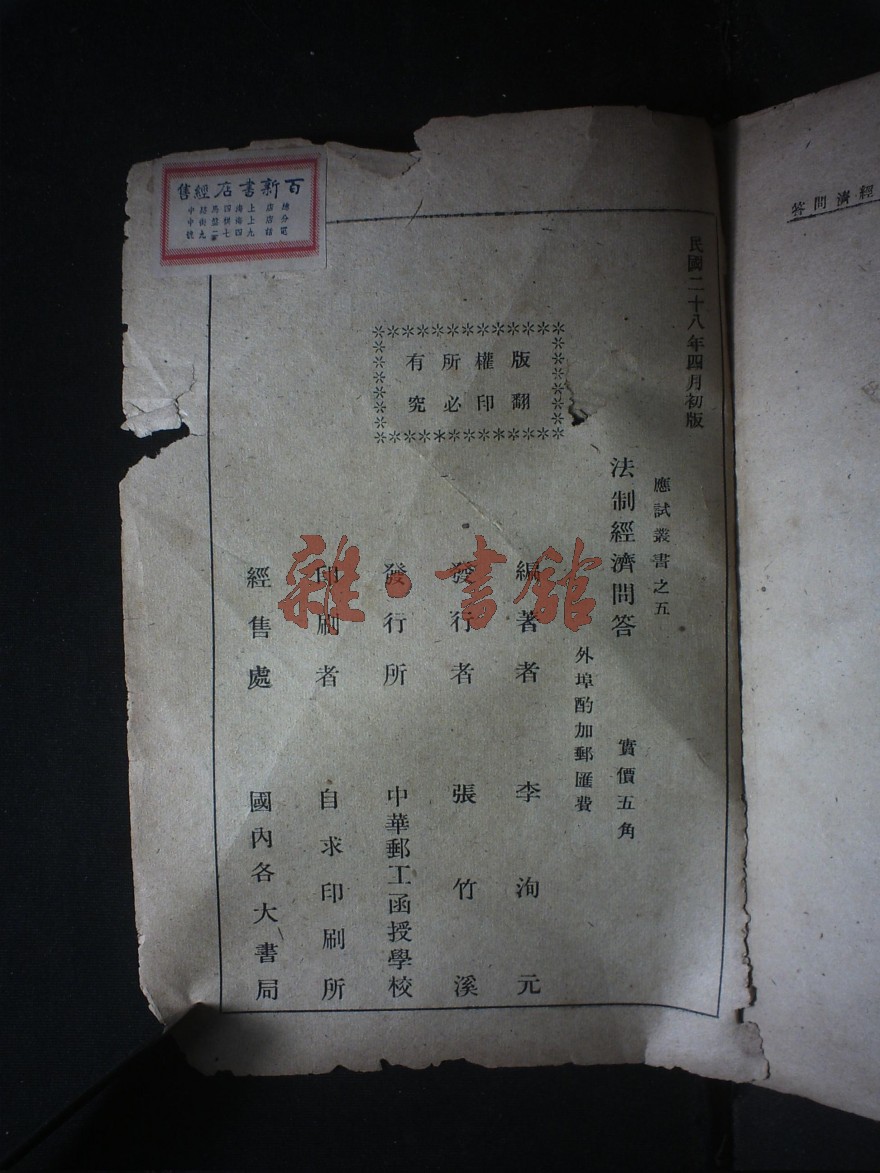 民國二十八年四月初版
應試叢書之五
法制經濟問答
實價五角
外埠酌加郵匯費
版權所有
翻印必究
編著者 李洵元
發行者 張竹溪
發行所 中華郵工函授學校
印刷者 自求印刷所
經售處 國內各大書局
百新書店經售
總店上海四馬路中
分店上海棋盤街中
電話九四七二九號
經濟問答
雜·書館